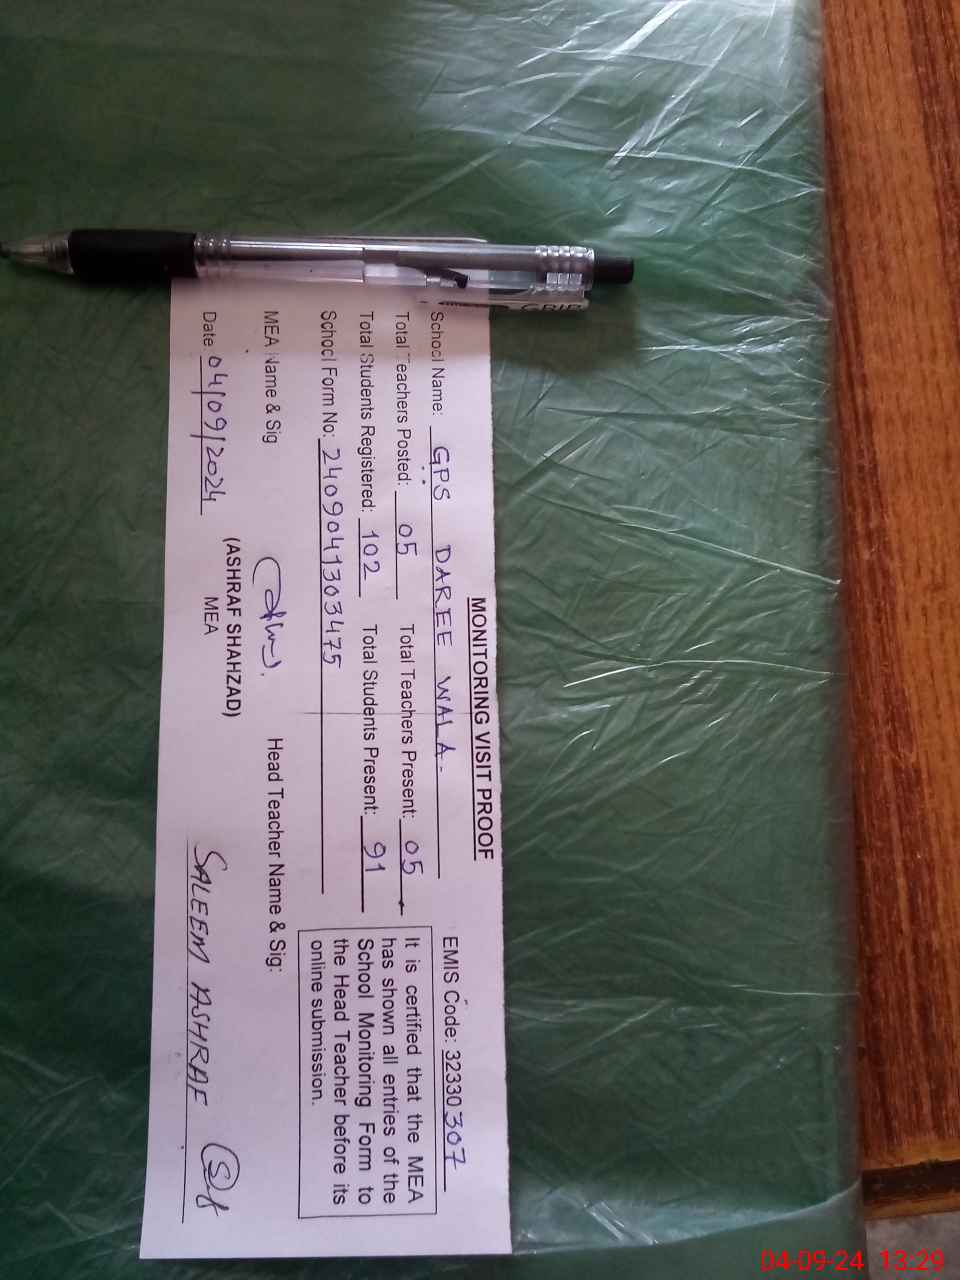 MONITORING VISIT PROOF
School Name: GPS DAREE WALA. EMIS Code: 32330307
Total Teachers Posted: 05 Total Teachers Present: 05
Total Students Registered: 102 Total Students Present: 91
School Form No: 2409041303475
It is certified that the MEA
has shown all entries of the
School Monitoring Form to
the Head Teacher before its
online submission.
MEA Name & Sig Head Teacher Name & Sig:
(ASHRAF SHAHZAD)
MEA
Date 04/09/2024 SALEEM ASHRAF
GRIP
04-09-24 13:29